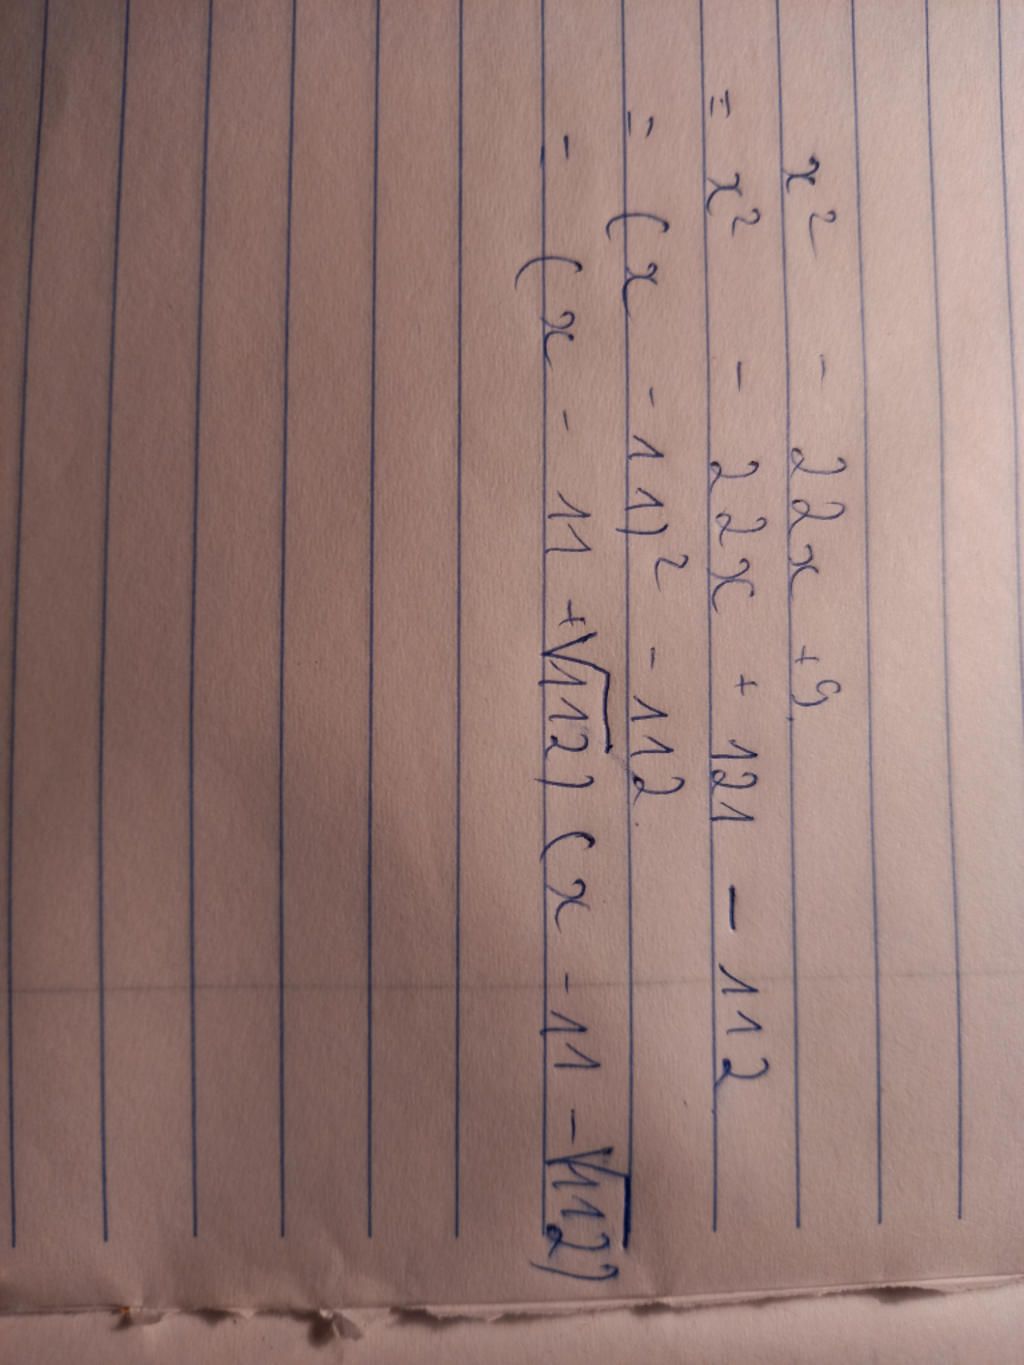 x² - 22x + 9
= x² - 22x + 121 - 112
= (x - 11)² - 112
= (x - 11 + √112) (x - 11 - √112)